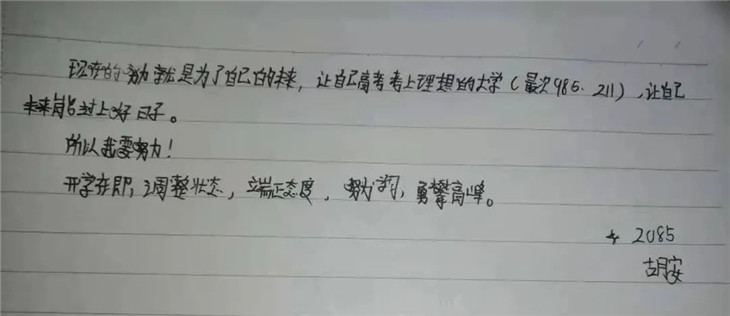 现在的努力就是为了自己的未来，让自己高考考上理想的大学（最次985.211），让自己
未来能过上好日子。
所以我要努力！
开学在即，调整状态，端正态度，努力学习，勇攀高峰。
2085
胡安